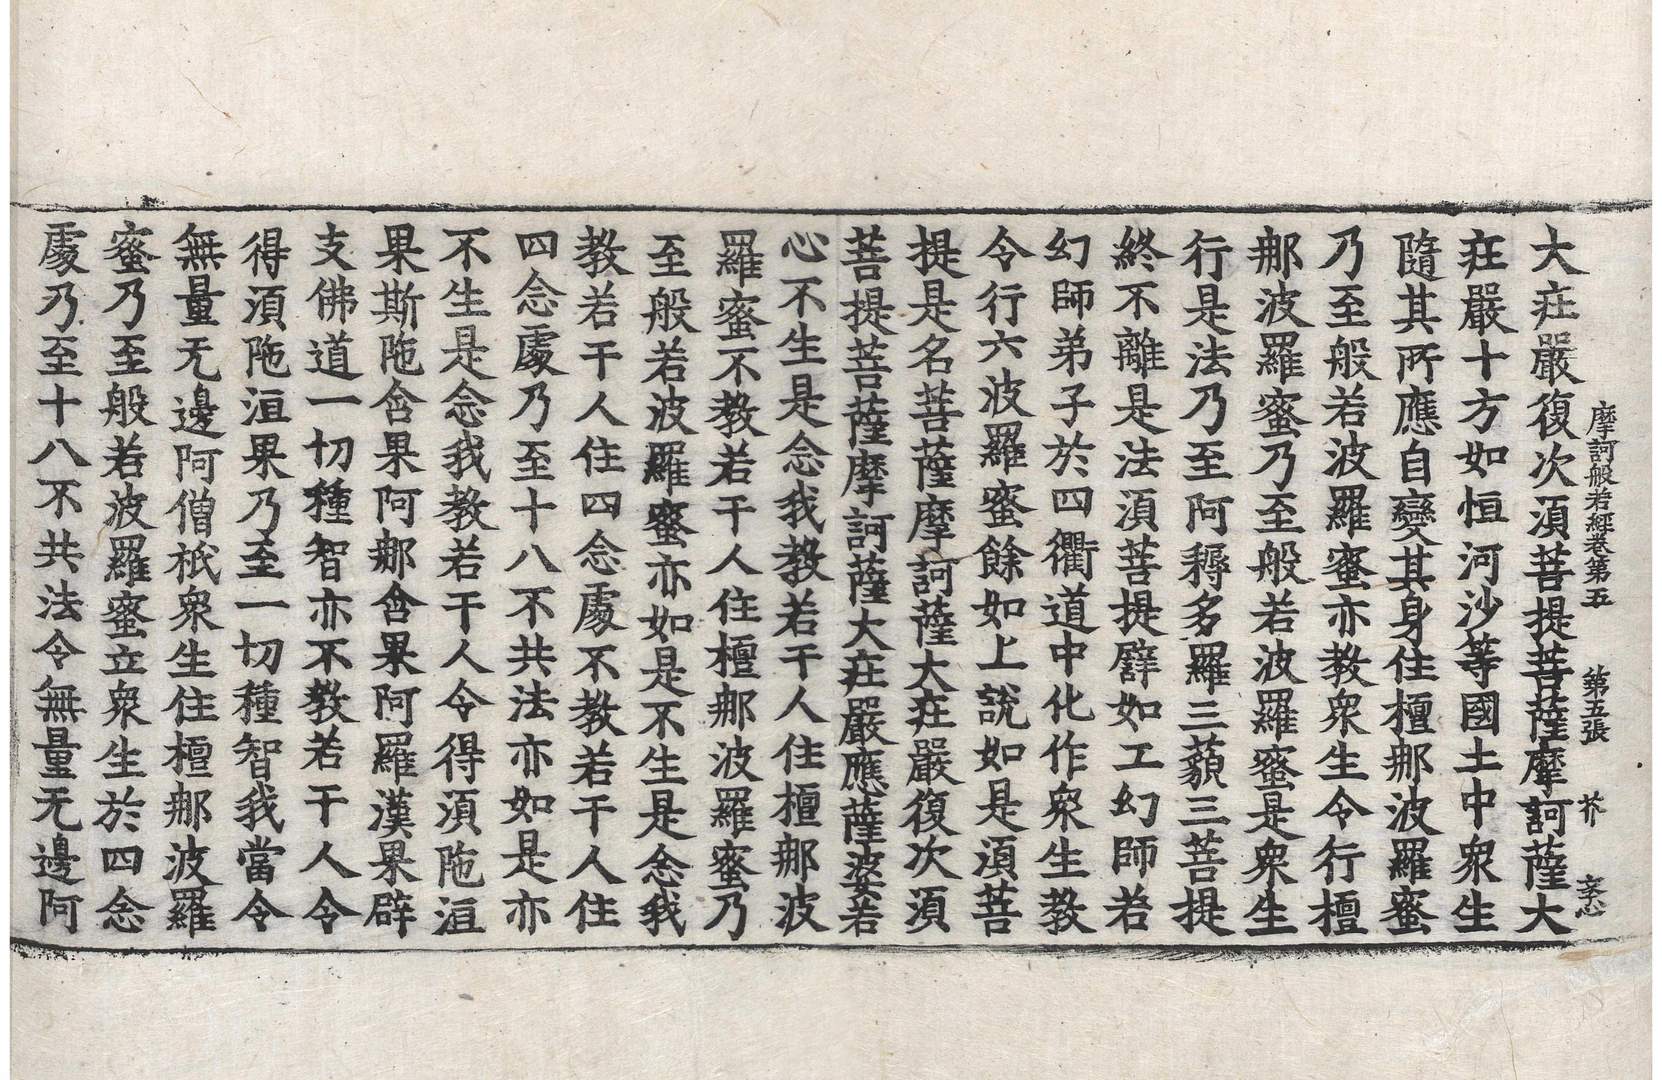 摩訶般若經卷第五 第五張 芥
大莊嚴復次須菩提菩薩摩訶薩大
莊嚴十方如恒河沙等國土中衆生
隨其所應自變其身住檀那波羅蜜
乃至般若波羅蜜亦教衆生令行檀
那波羅蜜乃至般若波羅蜜是衆生
行是法乃至阿耨多羅三藐三菩提
終不離是法須菩提譬如工幻師若
幻師弟子於四衢道中化作衆生教
令行六波羅蜜餘如上說如是須菩
提是名菩薩摩訶薩大莊嚴復次須
菩提菩薩摩訶薩大莊嚴應薩婆若
心不生是念我教若干人住檀那波
羅蜜不教若干人住檀那波羅蜜乃
至般若波羅蜜亦如是不生是念我
教若干人住四念處不教若干人住
四念處乃至十八不共法亦如是亦
不生是念我教若干人令得須陁洹
果斯陁含果阿那含果阿羅漢果辟
支佛道一切種智亦不教若干人令
得須陁洹果乃至一切種智我當令
無量无邊阿僧祇衆生住檀那波羅
蜜乃至般若波羅蜜立衆生於四念
處乃至十八不共法令無量无邊阿